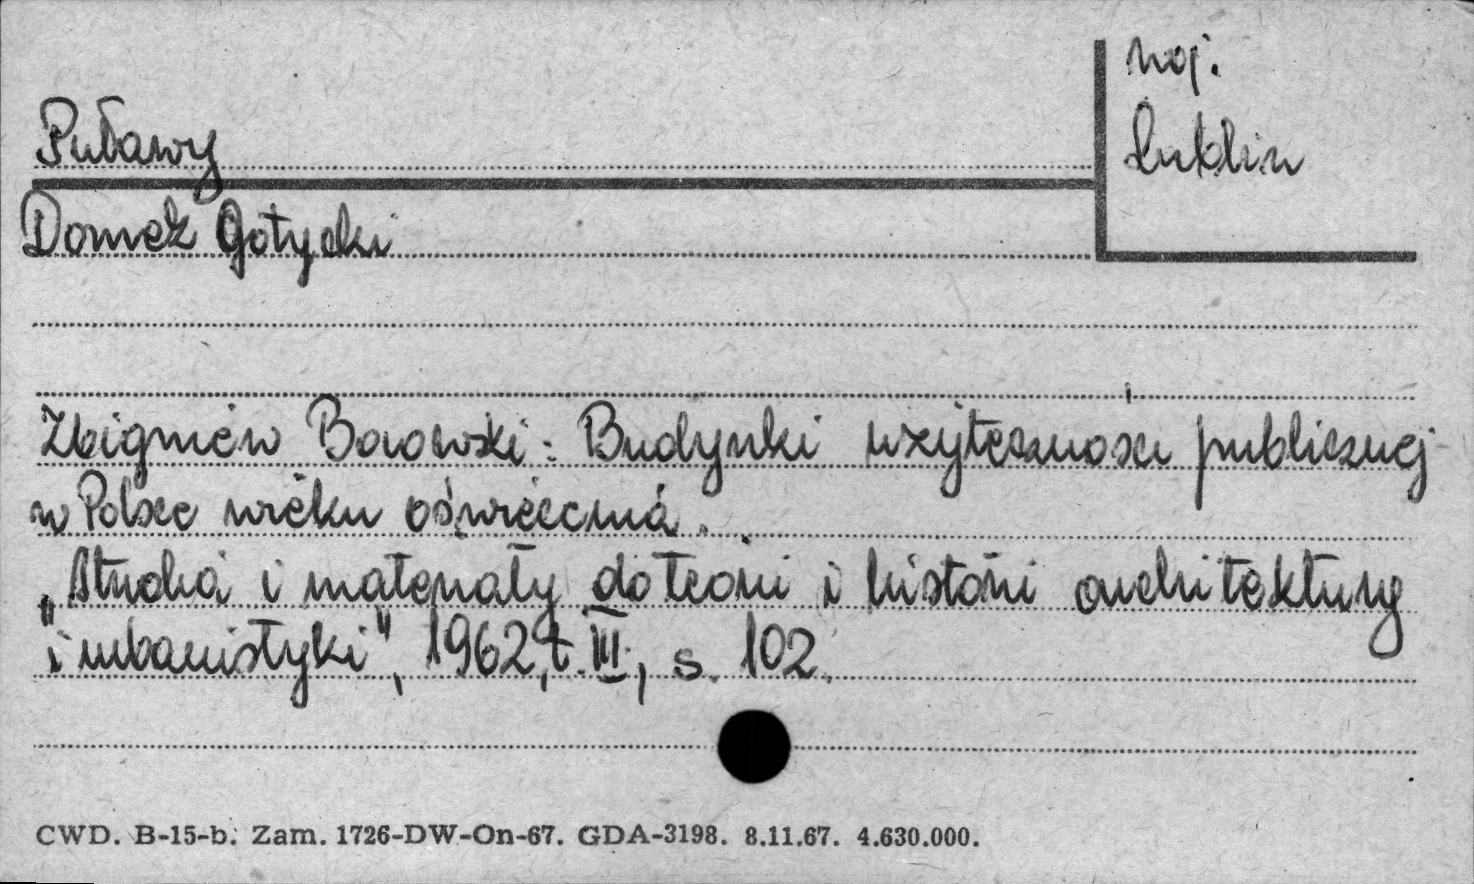 woj.
Lublin
Puławy
Domek Gotycki
Zbigniew Borowski: Budynki użyteczności publicznej
w Polsce wieku oświecenia.
„Studia i materiały do teorii i historii architektury
i urbanistyki", 1962, t. III, s. 102.
CWD. B-15-b. Zam. 1726-DW-On-67. GDA-3198. 8.11.67. 4.630.000.